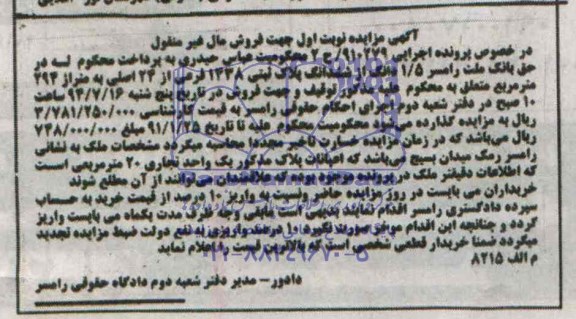 آگهی مزایده نوبت اول جهت فروش مال غیر منقول
در خصوص پرونده اجرایی ۹۱/۲۷۹/ج ۲ محکومیت عباس حیدری به پرداخت محکوم له در
حق بانک ملت رامسر ۱/۵ دانگ از ششدانگ پلاک ثبتی ۱۴۳۸ فرعی از ۲۳ اصلی به متراژ ۲۹۴
مترمربع متعلق به محکوم علیه توقیف و جهت فروش در تاریخ پنج شنبه ۹۴/۷/۱۶ ساعت
۱۰ صبح در دفتر شعبه دوم اجرای احکام حقوقی رامسر به قیمت کارشناسی ۳/۷۸۱/۲۵۰/۰۰۰
ریال به مزایده گذارده می‌شود محکومیت محکوم علیه تا تاریخ ۹۱/۱/۲۵ مبلغ ۷۴۸/۰۰۰/۰۰۰
ریال می‌باشد که در زمان مزایده خسارت تاخیر مجددا محاسبه میگردد مشخصات ملک به نشانی
رامسر رمک میدان بسیج می‌باشد که اعیانات پلاک مذکور یک واحد تجاری ۲۰ مترمربعی است
که اطلاعات دقیقتر ملک در پرونده موجود بوده که علاقمندان می‌توانند از آن مطلع شوند
خریداران می بایست در روز مزایده حاضر و نسبت به واریز از قیمت خرید به حساب
سپرده دادگستری رامسر اقدام نمایند بدیهی است مابقی وجه ظرف مدت یکماه می بایست واریز
گردد و چنانچه این اقدام موفق صورت نگیرد ده درصد واریزی به نفع دولت ضبط مزایده تجدید
میگردد ضمنا خریدار قطعی شخصی است که بالاترین قیمت را اعلام نماید
م الف ۸۲۱۵
۰۲۱-۸۸۳۴۹۶۷۰-۵
دادور – مدیر دفتر شعبه دوم دادگاه حقوقی رامسر